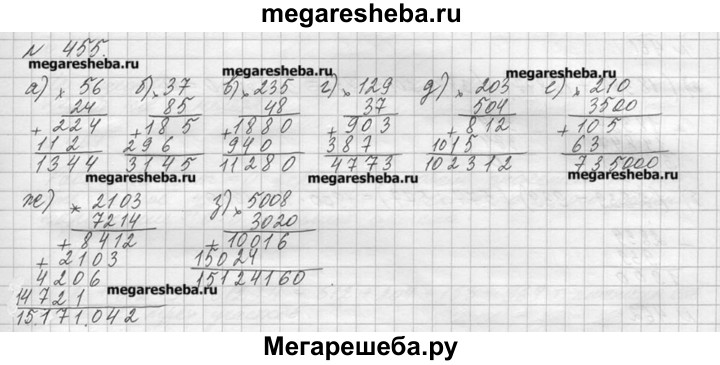 megaresheba.ru
№ 455.
megaresheba.ru megaresheba.ru megaresheba.ru
а) × 56 б) × 37 в) × 235 г) × 129 д) × 203 е) × 210
24 85 48 37 504 3500
+ 224 + 185 + 1880 + 903 + 812 + 105
112 296 940 387 1015 63
1344 3145 11280 4773 102312 735000
megaresheba.ru megaresheba.ru megaresheba.ru
ж) × 2103 з) × 5008
7214 3020
+ 8412 + 10016
+ 2103 15024
4206 15124160
megaresheba.ru megaresheba.ru
14721
15.171.042
Мегарешеба.ру